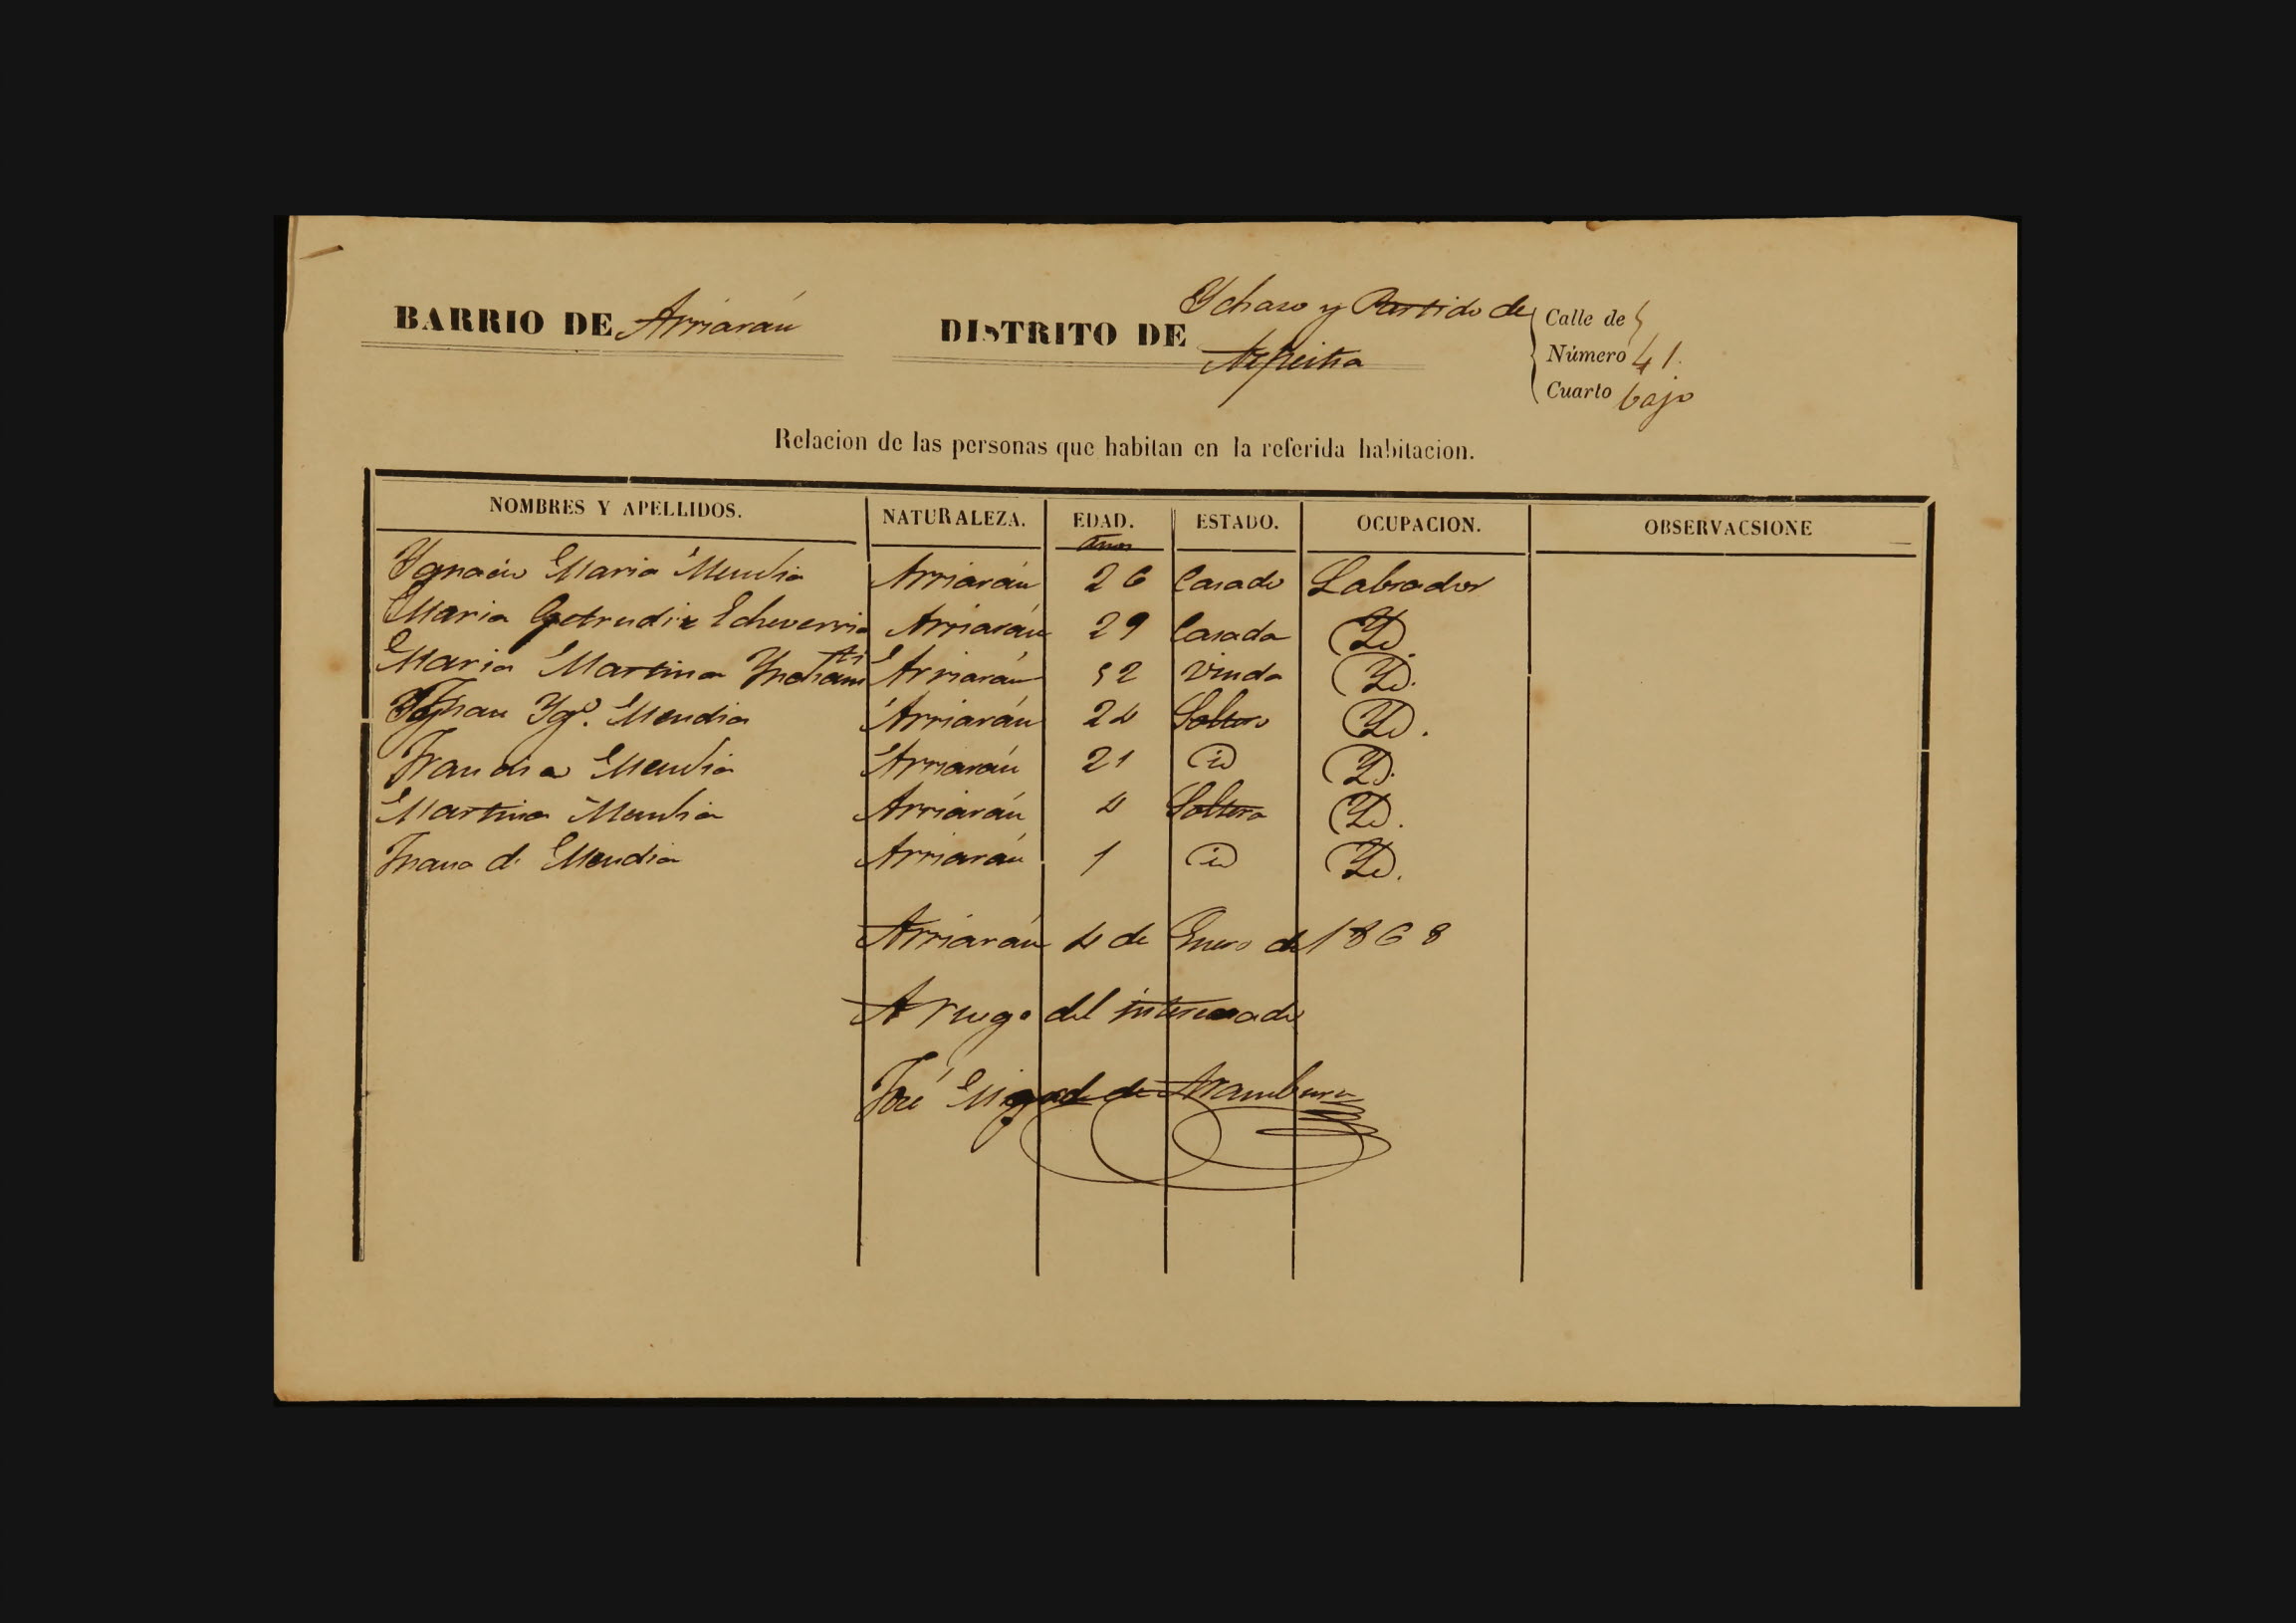 Ychaso y Partido de
BARRIO DE Arriarán DISTRITO DE Azpeitia
Calle de
Número 41.
Cuarto bajo
Relacion de las personas que habitan en la referida habitacion.
NOMBRES Y APELLIDOS. NATURALEZA. EDAD. ESTADO. OCUPACION. OBSERVACSIONE
años
Ygnacio Maria Mendia Arriarán 26 Casado Labrador
Maria Getrudiz Echeverria Arriarán 29 Casada Yd.
Maria Martina Arriarán 52 Viuda Yd.
Juan Ygº. Mendia Arriarán 24 Soltero Yd.
Francisca Mendia Arriarán 21 id Yd.
Martina Mendia Arriarán 4 Soltera Yd.
Juana Mendia Arriarán 1 id Yd.
Arriarán 4 de Enero de 1868
A ruego del interesado
José Miguel de Aramburu